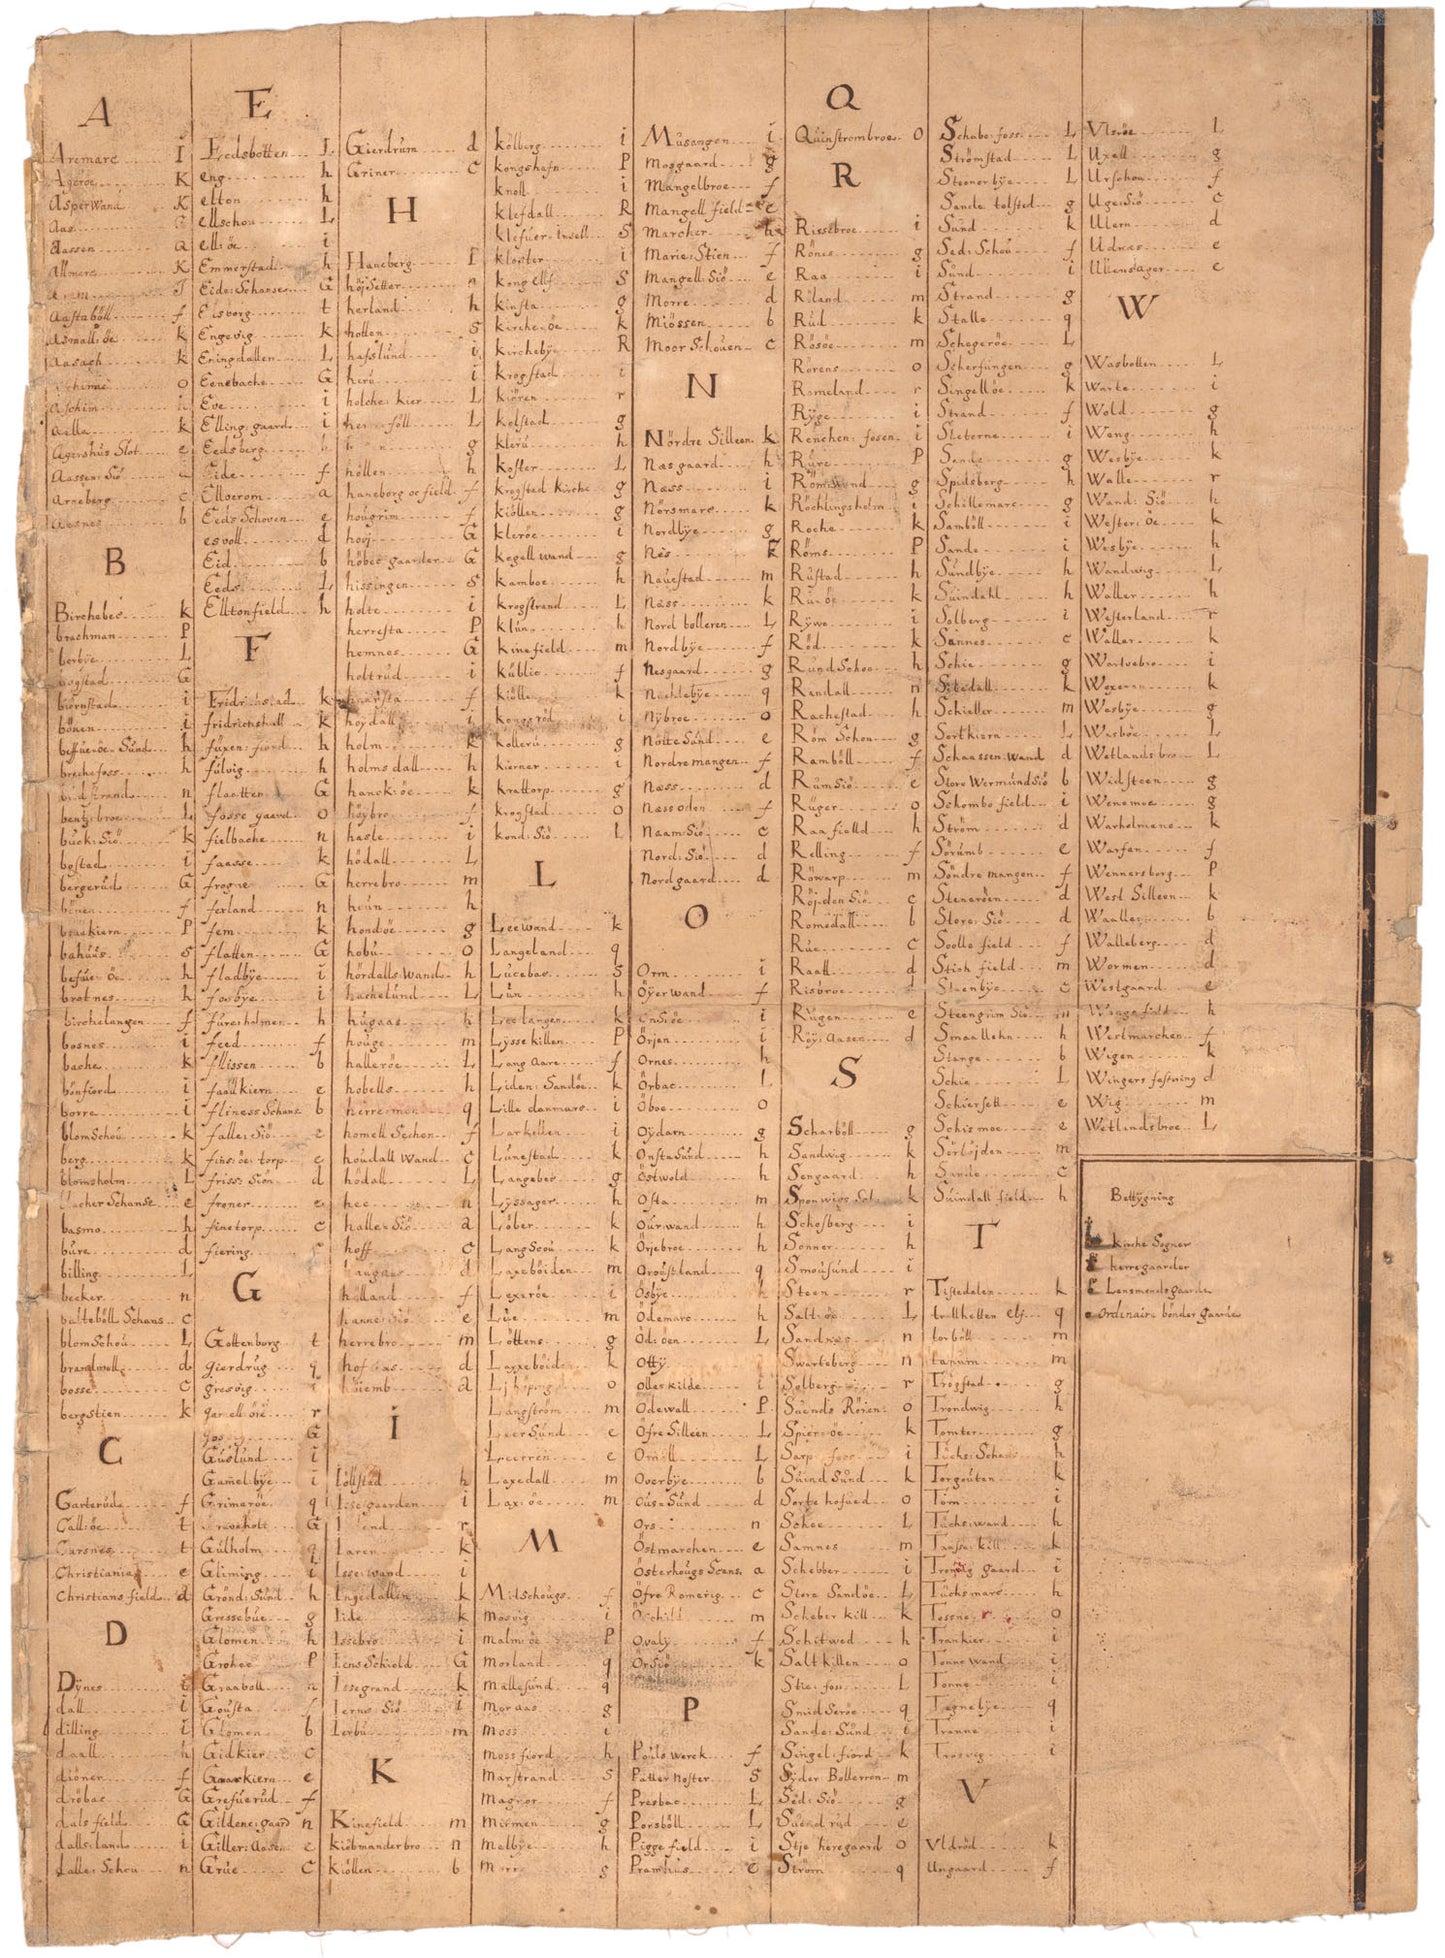 A
Aremarc I
Ageröe K
AsperWand K
Aas G
Aassen a
Allmerc K
Aastaböll f
Asmall: öe k
Aasagh k
Aschim h
Aella k
Agershus Slot e
Aassen: Siö
Arneberg c
Aosnes b
B
Birchebeö k
brachman P
borbÿe L
bogstad G
biörnstad i
bönen i
beffüeröe Sünd h
brechefoss h
bentz: broe L
buck: Siö k
bostad i
bergerud G
bönen f
brackiern P
bahüüs s
befüe: öe h
brotnes h
birchelangen f
bosnes i
bache k
bönfiord i
borre i
blomSchou k
berg k
blomsholm L
basmo h
büre d
billing L
becker n
balteböll Schans c
blomSchou L
brandwoll d
bosse c
bergstien k
C
Garterüd f
Call: öe t
Cursnes t
Christiania e
Christiansfield d
D
Dÿnes i
dall i
dilling i
daall h
diöner f
dröbac G
dals field G
dalls: land i
dalle: Schou n
E
Eedsbotten L
eng h
elton h
ellschou L
ell: öe i
Emmerstad h
Eide: Schanse G
Eisborg t
Engevig k
Eningdallen L
Eenebache G
Eve i
Elling: gaard i
Eedsberg h
Eide f
Elloerom a
Eeds Schoven e
esvoll d
Eid b
Eeds L
Elltonfield h
F
Fridrichstad k
fridrichshall k
füxen: fiord h
fülvig h
flaatten G
fosse gaard o
fielbache n
faasse k
frogne G
ferland n
fem k
flatten G
fladbÿe i
fosbÿe i
füresholmen h
feed f
fllissen b
faaülkiern e
fliness Schans b
falle: Siö e
fins: öe: torp e
friss: Siön d
froner e
finetorp c
fiering c
G
Gottenborg t
gierdrüg q
gresvig i
gamell öie r
Güslünd i
Gamel: bÿe i
Grimeröe q
Graveholt G
Gülholm q
Gliming i
Grönd: Sünd h
Gressebüe g
Glomen h
Grohoe P
Graaboll n
Gousta f
Glomen b
Gidkier c
Graaskiern e
Grefüerüd f
Gildene: gaard n
Giller: Aasen e
Grüe c
Gierdrüm d
Griner c
H
Haneberg I
höjSetter n
herland h
hollen s
hasslünd i
herü i
holche: kier L
höllen h
haneborg oe field f
hougrim f
hovj G
höbeö gaarden G
hissingen s
holte i
herresta P
hemnes G
holtrüd i
knapsta f
höydall i
holm k
holms dall h
hanck: öe k
höybro f
hasle i
hödall L
herrebro m
houn h
hondöe g
hobü o
hördalls: Wand h
hachelünd L
hügaas h
houge m
halleröe L
hobells h
herremoe q
homell Sechen f
houdall Wand c
hödall L
hee n
halle: Siö a
hoff c
haugaas d
hölland f
hanne: Siö e
herrebro m
hof aas d
hüiemb a
I
Iöllstad h
Issegaarden i
Iaren k
Isse: wand i
Ingedallen k
Iide k
Issebro i
IensSchiold G
Issegrand k
Ierns Siö i
Ierbü m
K
Kinefield m
kiöbmanderbro n
kiöllen b
kölberg i
kongshafn P
knoll i
klefdall R
klefuer: Insell S
kloster i
kong ellf S
kinsta g
kirche: öe k
kirchebÿe R
krogstad i
kiören r
kolstad g
klerü h
koster L
krogstad kirche g
kiöllen g
kleröe i
kegell wand g
kamboe h
krogstrand L
klün h
kinefield m
küblie f
kiölle k
kongsröd i
kollerü g
kierner i
krattorp g
krogstad o
kond: Siö L
L
Leewand k
Langeland q
Lucebac s
Lün h
Lee langen k
Lÿsse killen P
Lang Aare f
Liden: Sandöe k
Lille danmarc i
Larkollen i
Lünestad k
Langebeö g
Lÿssager h
Löber k
LangScou k
Laxeböiden m
Lexeröe i
Lüe m
Löttens g
Laxxeböid k
Ljhöping o
Langström m
LeerSünd e
Leerren e
Laxedall m
Lax: öe m
M
MitSchougs f
mosvig i
malm: öe P
morland q
mallesünd q
mor aas g
moss i
mossfiord h
marstrand s
magnor f
mismen g
melbÿe h
morre g
Müsangen i
mosgaard g
Mangelbroe f
Mangell field e
Marcher h
Marie: Stien f
Mangell: Siö e
Morre d
Miössen b
Moor Schouen c
N
Nördre Silleen k
Næsgaard h
Næss i
Nörsmarc k
Nordbÿe g
Nes k
Nauestad m
Næss k
Nord bolleren L
Nordbÿe f
Nesgaard g
Nuchlebÿe q
Nÿbroe o
NötteSünd e
Nordremangen f
Næss d
Næss odon f
Naam: Siö c
Nord: Siö d
Nordgaard d
O
Orm i
Öÿer wand f
Onsöe i
Örjen i
Ornes h
Örbac L
Öboe o
Oÿdarn g
ÖnstaSünd h
Östwold h
Osta m
Oürwand h
Örjebroe h
Oroüstland q
Ösbÿe h
Ödemarc h
Öd: öen L
Ottÿ
Olleskilde i
Odewall P
Öfre Silleen L
Ornöll L
Overbÿe b
Oüse Sünd d
Ors n
Östmarchen e
Österhougs Scans a
Öfre Romerig c
Oschild m
Ovalÿ f
OrSiö k
P
Pouls werck f
Patter Noster s
Presbac L
Porsböll L
Piggefield i
Pramhüs e
Q
Quinstrombroe o
R
Rissebroe i
Rönes g
Raa i
Röland m
Rüd k
Rösöe m
Rörens o
Romeland r
Rÿge i
Renchen: fosen i
Rüre P
Römwand g
Röchlingsholm i
Roche k
Röms P
Rüstad h
Rü: öe k
Rÿwe i
Röd k
RündSchoe h
Randall n
Rachestad h
Röm Schou g
Ramböll f
RümSiö e
Rüger o
Raa fielld h
Relling f
Röwarp m
Röjden Siö c
Romedall b
Rüe c
Raatt d
Risbroe d
Rügen e
Röÿ: Aasen d
S
Scharböll g
Sandwig k
Sengaard h
Sponwigs Sch k
Schosberg i
Sonner h
Smousünd i
Steen r
Salt: öe L
Sandnes n
Swarteberg n
Solberg r
Süends Rören o
Spier: öe k
Sarp foss i
Süind Sünd k
Sorte hofued o
Schoe L
Samnes m
Schebber i
Store Sandöe L
Scheber kill k
Schitwed h
Salt killen o
Stie: foss L
Smid Seröe q
Sande: Sünd i
Singel: fiord k
Sÿder Bolleren m
Sed: Siö g
Süendrüd e
Stje heregaard o
Ström q
Schabo: foss L
Strömstad L
Steenerbÿe L
Sande tolsted g
Sünd k
Sed: Schou f
Sünd i
Strand g
Stalle q
Schogeröe L
Scherfüngen g
Singellöe k
Strand f
Sleterne i
Sande g
Spidsberg h
Schillemarc g
Samböll i
Sande i
Sündbÿe h
Süindahl h
Solberg i
Sannes c
Schie g
Stbedall k
Schieller m
Sortkiern L
Schaassen: Wand d
Store WermündSiö b
Schombo field i
Ström d
Sörumb e
Söndre mangen f
Steneröen d
Store: Siö d
Soollo field f
Stish field m
Steenbÿe c
Steengrim Siö m
Smaallehn h
Stange b
Schie L
Schiersett e
Schismoe e
Sörlöjden m
Sande c
Süindall field h
T
Tistedalen k
trollhetten elf q
torböll m
tanüm m
Trögstad g
Trondwig h
Tomter g
Tüchs: Schans h
Torgouten k
Torn i
Tüchs: wand h
Tanssa: kill k
Tronöig gaard i
Tüchsmarc h
Tossene r o
Trankier i
Tonne wand i
Tonne i
Tegnebÿe q
Tranne i
Trosvig i
V
Vldröd k
Ungaard f
Vlsröe L
Uxell g
Urschou f
Uge: Siö c
Ulern d
Udnæs e
Ullensager e
W
Wasbotten L
Warte i
Wold g
Weng h
Wesbÿe k
Walle r
Wand: Siö h
Wester: Öe k
Wesbÿe h
Wandwig L
Waller h
Westerland r
Waller k
Wartvebro i
Woxeran k
Wesbÿe g
Wesböe L
Wetlandsbro L
Widsteen g
Wenemoe g
Warholmene k
Warfen f
Wennersborg P
West Silleen k
Waaller b
Walleberg d
Wormen d
Westgaard e
Wangefield h
Westmarchen f
Wigen k
Wingers festning d
Wig m
Wetlandsbroe L
Bettÿgning
kirche Sogner
herregaarder
Lensmendsgaarde
ordinaire bönder gaarde